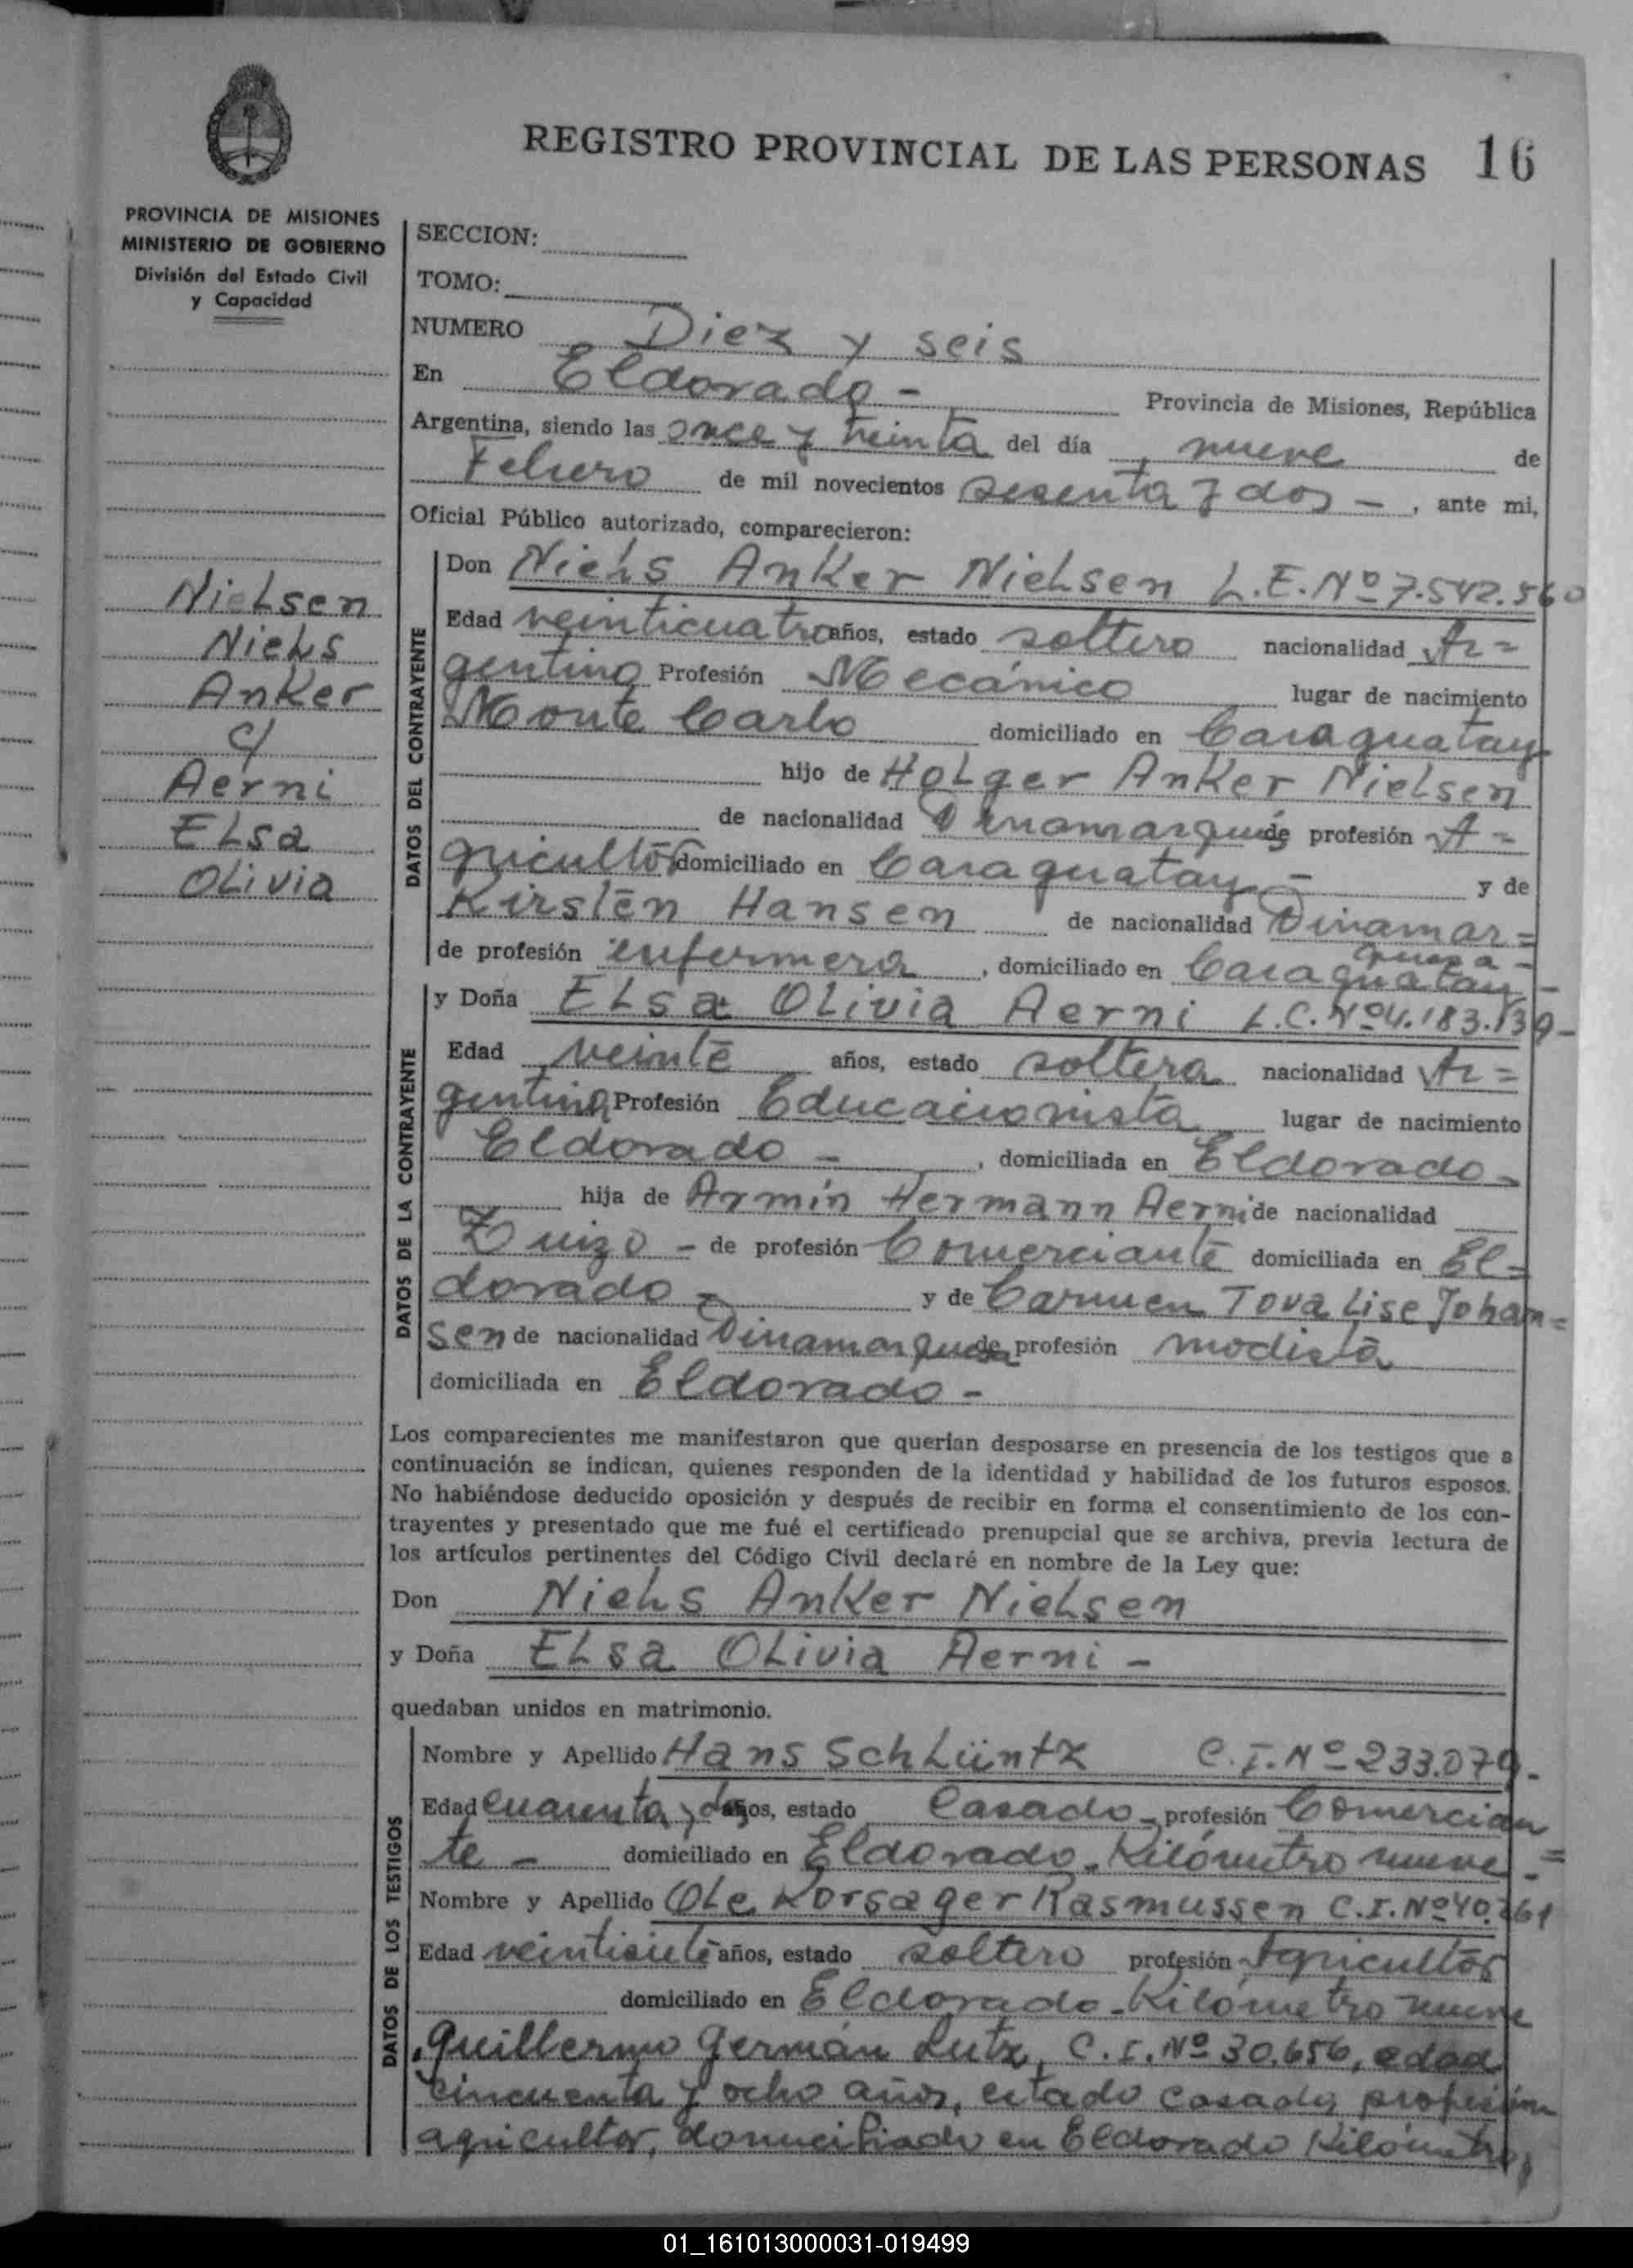 REGISTRO PROVINCIAL DE LAS PERSONAS 16
PROVINCIA DE MISIONES
MINISTERIO DE GOBIERNO
División del Estado Civil
y Capacidad
Nielsen
Niels
Anker
c/
Aerni
Elsa
Olivia
SECCION:
TOMO:
NUMERO Diez y seis
En Eldorado - Provincia de Misiones, República
Argentina, siendo las once y treinta del día nueve de
Febrero de mil novecientos sesenta y dos - , ante mi,
Oficial Público autorizado, comparecieron:
DATOS DEL CONTRAYENTE
Don Niels Anker Nielsen L.E. Nº 7.542.560
Edad veinticuatro años, estado soltero nacionalidad Ar=
gentino Profesión Mecánico lugar de nacimiento
Monte Carlo domiciliado en Caraguatay
hijo de Holger Anker Nielsen
de nacionalidad Dinamarqués de profesión A=
gricultor domiciliado en Caraguatay - y de
Kirsten Hansen de nacionalidad Dinamar=
quesa -
de profesión enfermera , domiciliado en Caraguatay -
DATOS DE LA CONTRAYENTE
y Doña Elsa Olivia Aerni L.C. Nº 4.183.139-
Edad veinte años, estado soltera nacionalidad Ar=
gentina Profesión Educacionista lugar de nacimiento
Eldorado - , domiciliada en Eldorado -
hija de Armin Hermann Aerni de nacionalidad
Zuizo - de profesión Comerciante domiciliada en El=
dorado - y de Carmen Tova Lise Johan=
sen de nacionalidad Dinamarquesa de profesión modista
domiciliada en Eldorado -
Los comparecientes me manifestaron que querían desposarse en presencia de los testigos que a
continuación se indican, quienes responden de la identidad y habilidad de los futuros esposos.
No habiéndose deducido oposición y después de recibir en forma el consentimiento de los con-
trayentes y presentado que me fué el certificado prenupcial que se archiva, previa lectura de
los artículos pertinentes del Código Civil declaré en nombre de la Ley que:
Don Niels Anker Nielsen
y Doña Elsa Olivia Aerni -
quedaban unidos en matrimonio.
DATOS DE LOS TESTIGOS
Nombre y Apellido Hans Schlüntz C.I. Nº 233.079.-
Edad cuarenta y dos años, estado Casado - profesión Comercian=
te - domiciliado en Eldorado - Kilómetro nueve -
Nombre y Apellido Ole Korsager Rasmussen C.I. Nº 40.261
Edad veintisiete años, estado soltero profesión Agricultor
domiciliado en Eldorado - Kilómetro nueve
, Guillermo Germán Lutz, C.I. Nº 30.656, edad
cincuenta y ocho años, estado casado, profesión
agricultor, domiciliado en Eldorado Kilómetro,
01_161013000031-019499